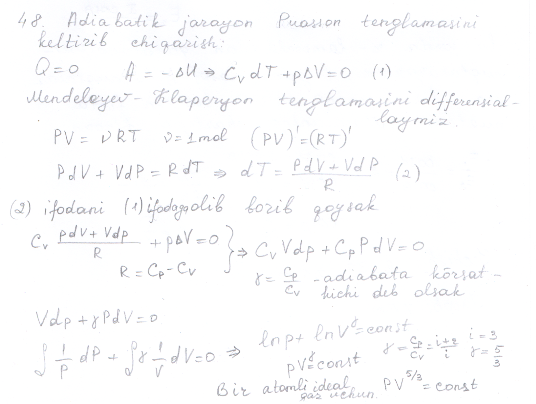 48. Adiabatik jarayon Puasson tenglamasini
keltirib chiqarish:
Q=0 A = -ΔU ⇒ CvdT + pΔV=0 (1)
Mendeleyev-Klaperyon tenglamasini differensial-
laymiz.
PV = νRT ν=1mol (PV)'=(RT)'
PdV + VdP = RdT ⇒ dT = (PdV + VdP)/R (2)
(2) ifodani (1) ifodaga olib borib qoysak
Cv (pdV + Vdp)/R + pΔV=0 } ⇒ CvVdp + CpPdV=0
R = Cp - Cv γ = Cp/Cv -adiabata körsat-
kichi deb olsak
Vdp + γPdV=0
∫ 1/p dP + ∫γ 1/V dV=0 ⇒ lnp + lnV^γ=const
pV^γ=const γ = Cp/Cv = (i+2)/i i=3 γ=5/3
Bir atomli ideal gaz uchun. PV^5/3 = const